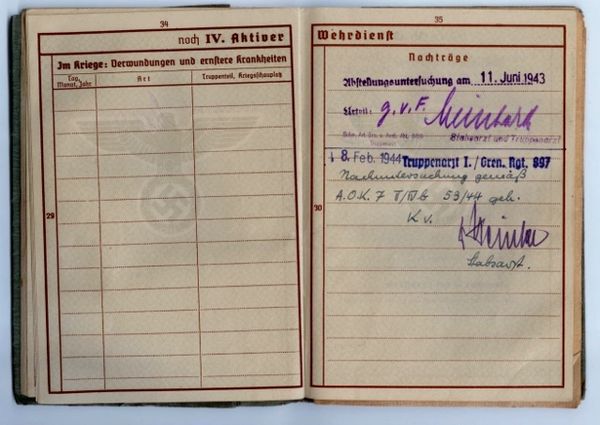 34
noch IV. Aktiver
Im Kriege: Verwundungen und ernstere Krankheiten
Tag, Monat, Jahr
Art
Truppenteil, Kriegsschauplatz
29
35
Wehrdienst
Nachträge
Abstellungsuntersuchung am 11. Juni 1943
Urteil: g.v.F.
Stabsarzt und Truppenarzt
18. Feb. 1944 Truppenarzt I./Gren. Rgt. 897
Nachuntersuchung gemäß
A.O.K. 7 53/44 geh.
30
K v.
Stabsarzt.